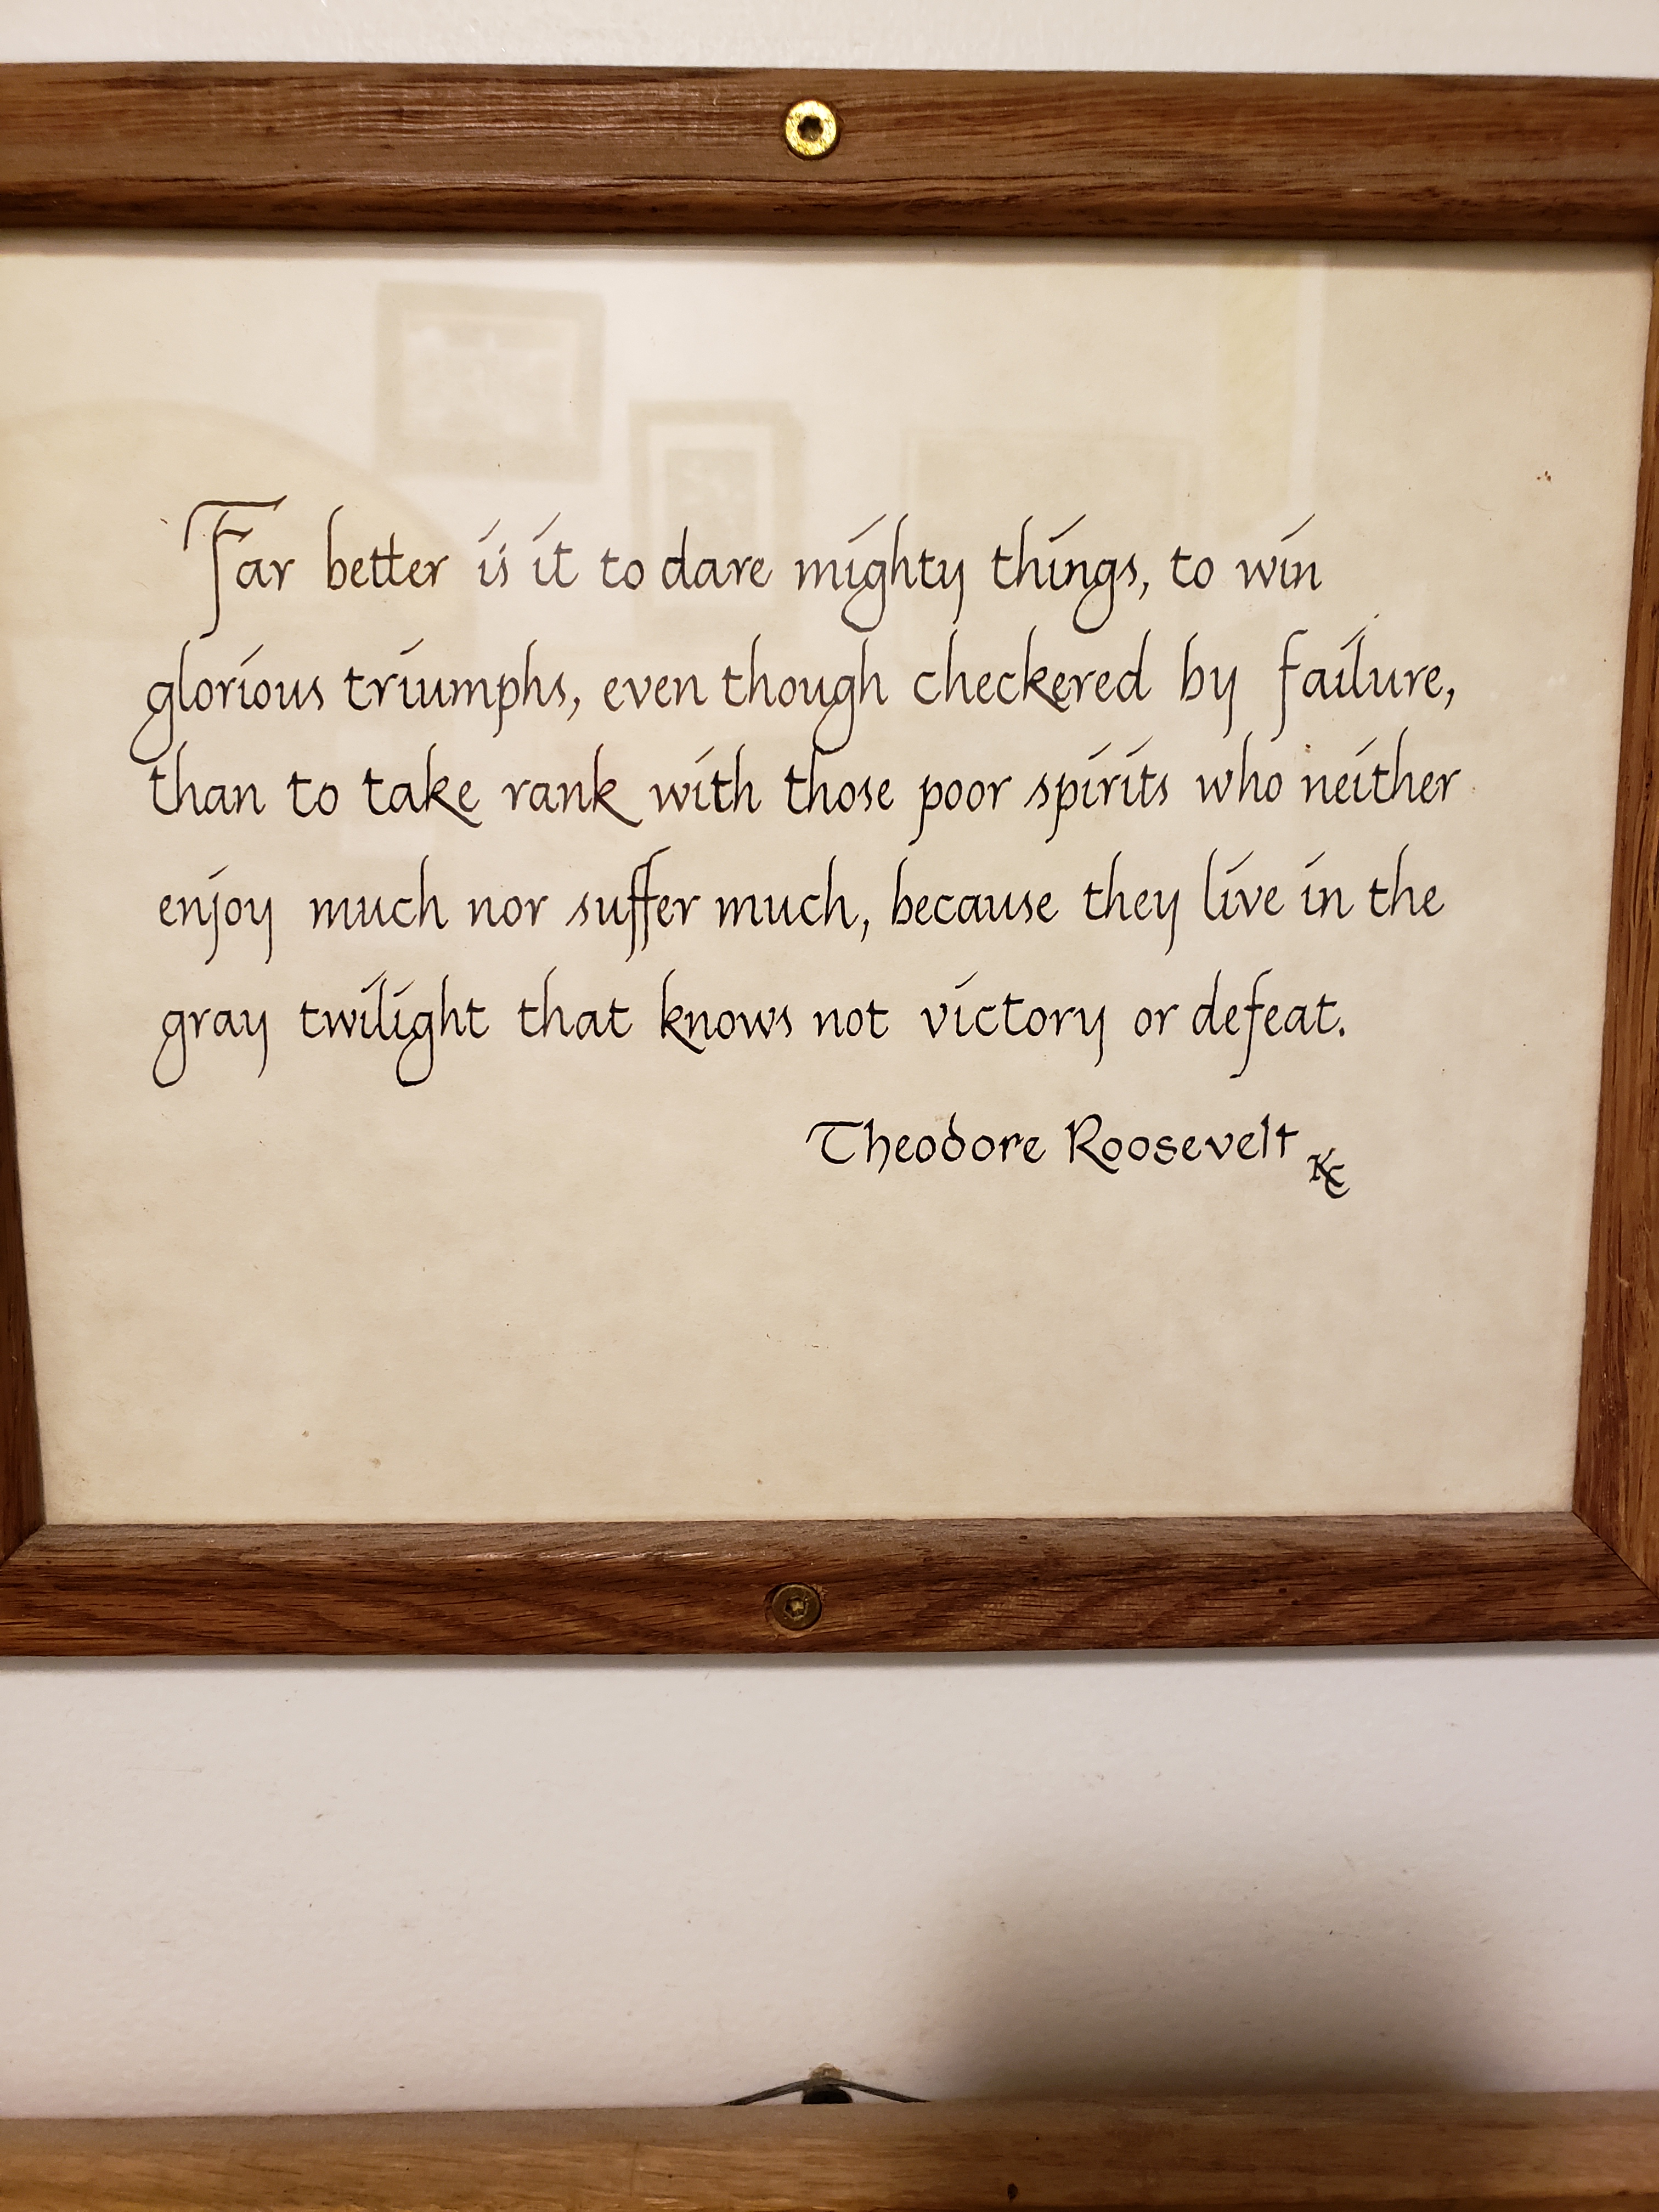 Far better is it to dare mighty things, to win
glorious triumphs, even though checkered by failure,
than to take rank with those poor spirits who neither
enjoy much nor suffer much, because they live in the
gray twilight that knows not victory or defeat.
Theodore Roosevelt KC